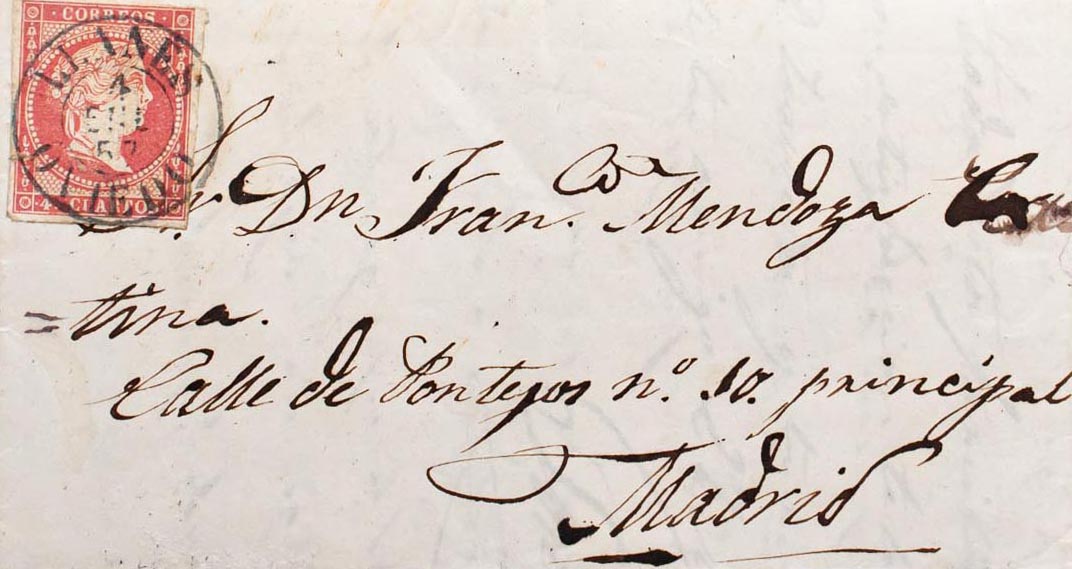 CORREOS
LLANES
4 ENE 57
OVIEDO
4 CUARTOS
Sr. Dn. Franco. Mendoza Cor
=tina.
Calle de Pontejos no. 10. principal
Madrid